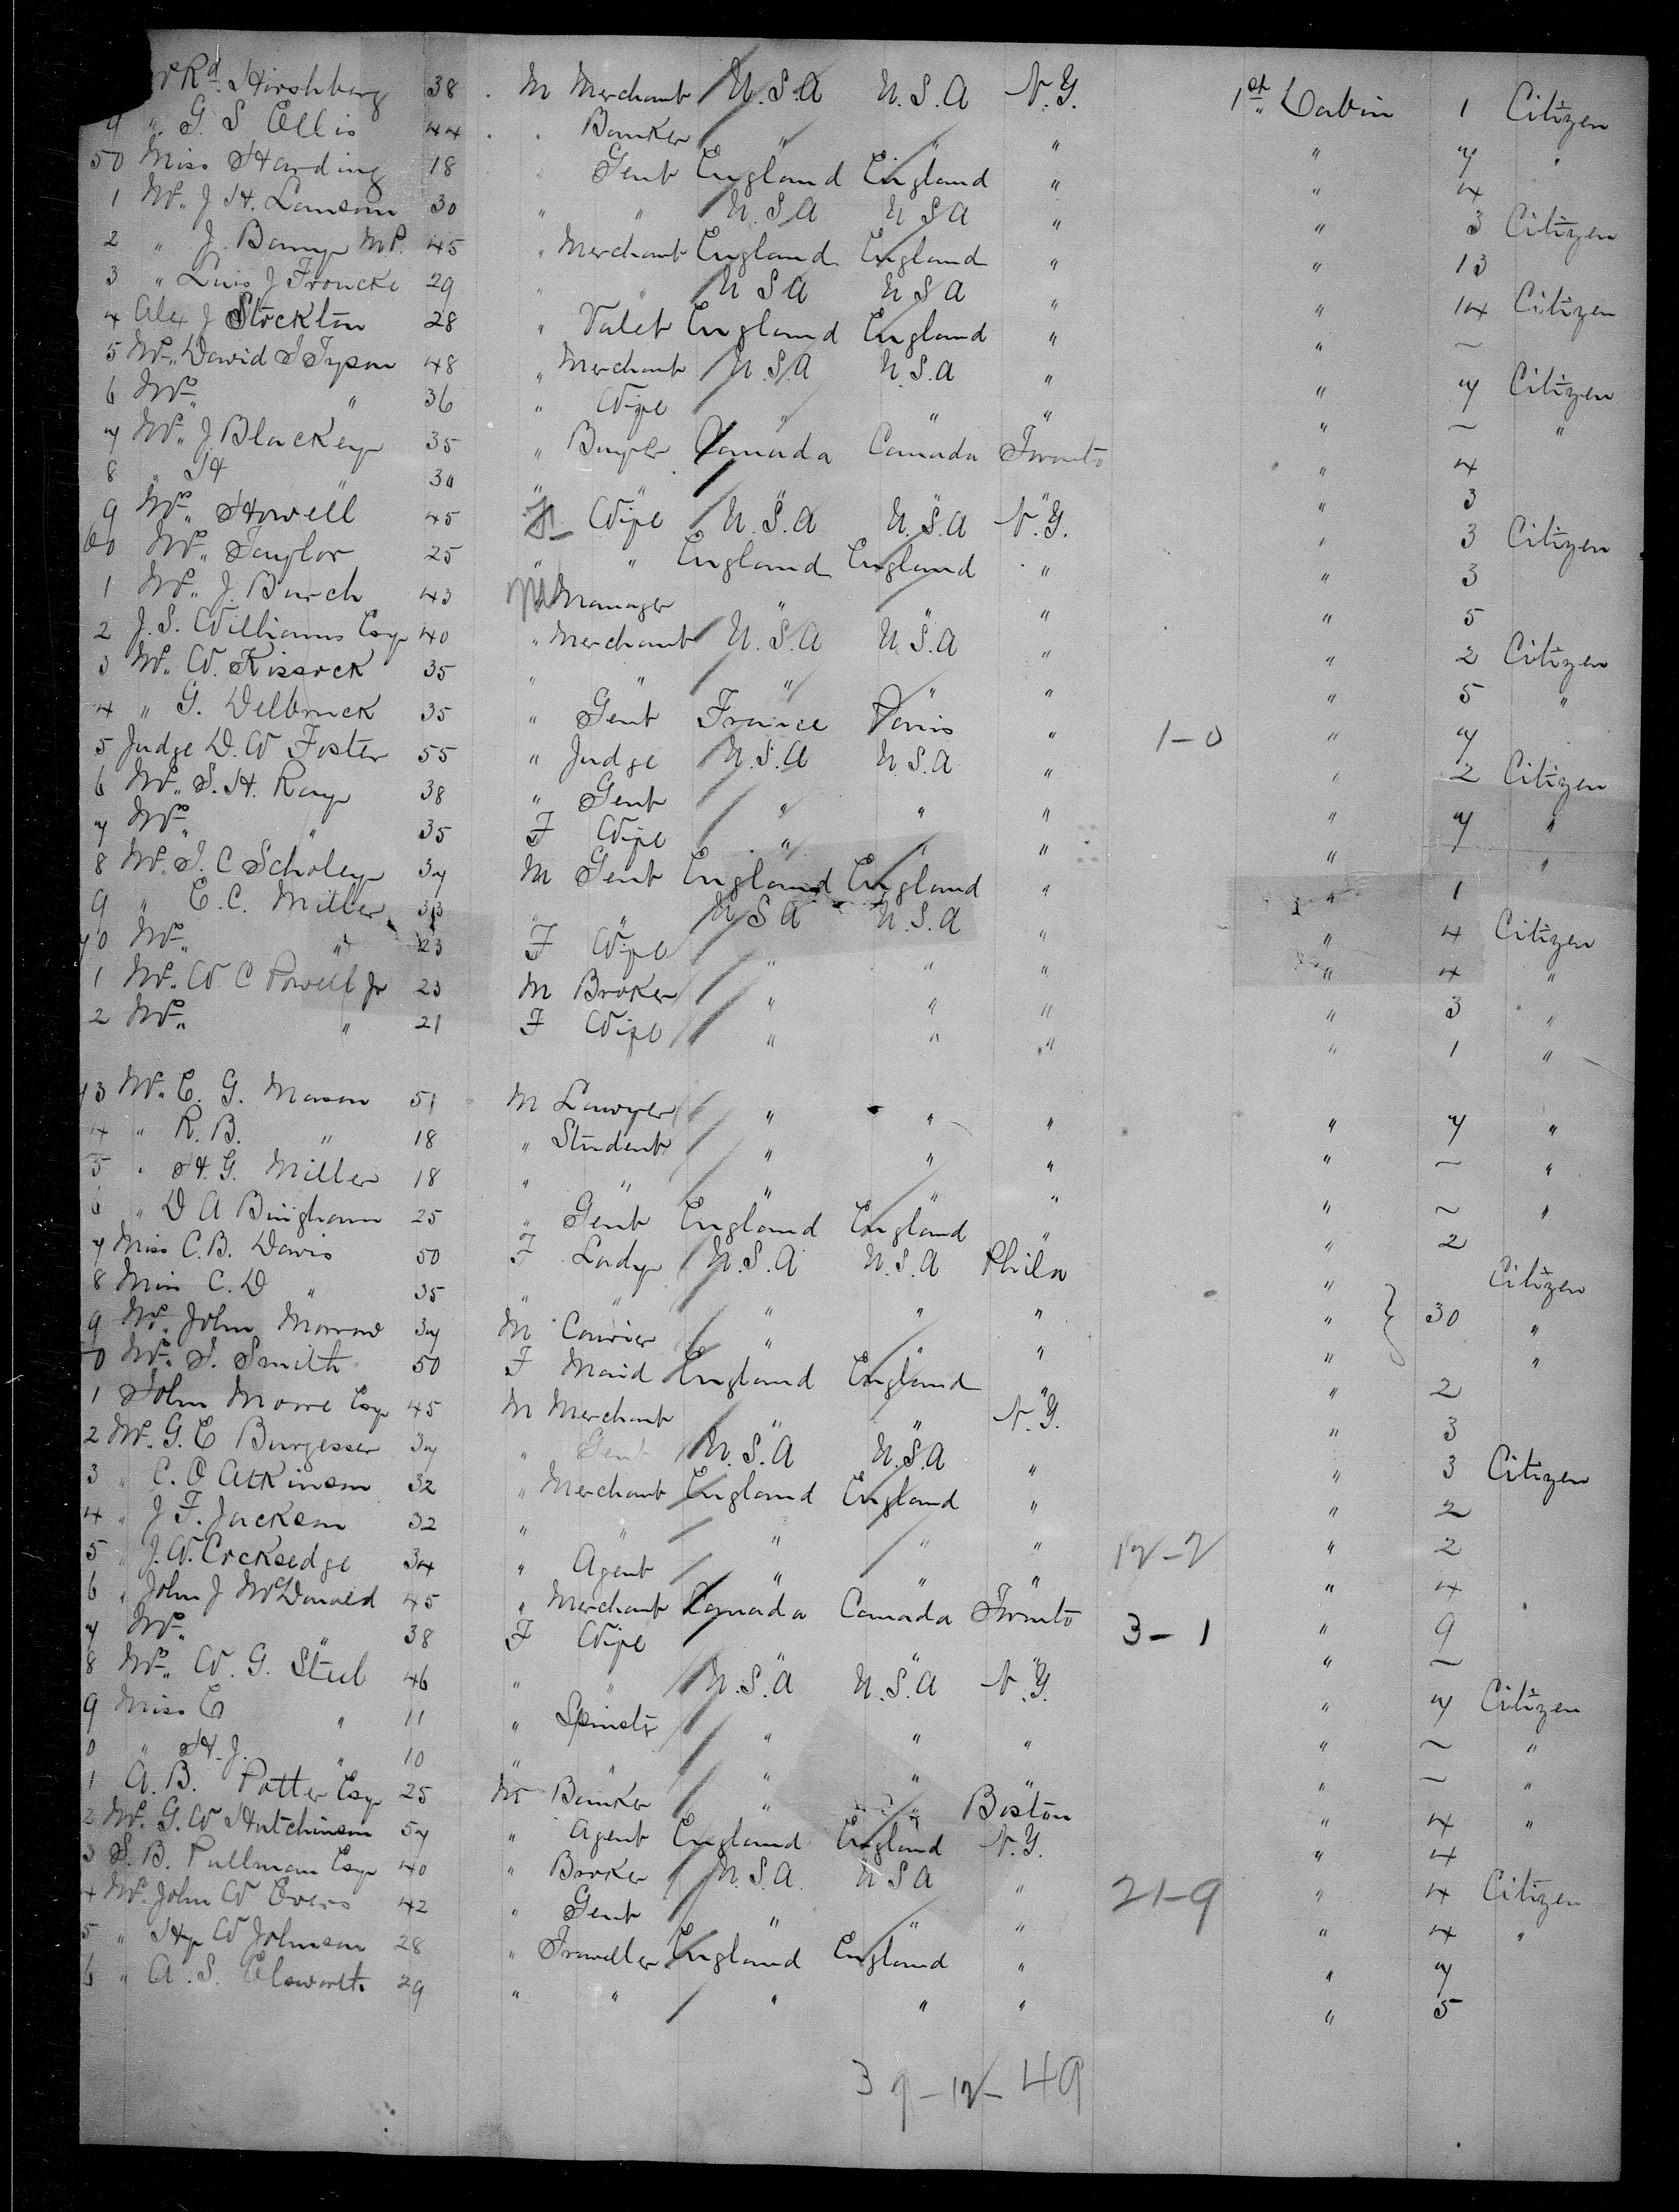 Rd Hirshberg 38 M Merchant U.S.A U.S.A N.Y. 1st Cabin 1 Citizen
9 " G. S Ellis 44 Banker " " " " 7 "
50 Miss Harding 18 " Gent England England " " 4
1 Mr. J. H. Lamson 30 " " U.S.A U.S.A " " 3 Citizen
2 " J. Barry M.P. 45 " Merchant England England " " 13
3 " Luis J Francke 29 " " U.S.A U.S.A " " 14 Citizen
4 Alex J Stockton 28 " Valet England England " " ~
5 Mr. David I Tyson 48 " Merchant U.S.A U.S.A " " 7 Citizen
6 Mrs " 36 " Wife " " " " ~ "
7 Mr. J. Blackey 35 " Buyer Canada Canada Toronto " 4
8 " H " 30 " " " " " " 3
9 Mrs. Howell 45 F Wife U.S.A U.S.A N.Y. " 3 Citizen
60 Mrs. Taylor 25 " " England England " " 3
1 Mr. J. Burch 43 M Manager " " " " 5
2 J. S. Williams Esq 40 " Merchant U.S.A U.S.A " " 2 Citizen
3 Mr. W. Kissock 35 " " " " " " 5 "
4 " G. Delbruck 35 " Gent France Paris " 1-0 " 7
5 Judge D. W Foster 55 " Judge U.S.A U.S.A " " 2 Citizen
6 Mr. S. H. Ray 38 " Gent " " " " 7 "
7 Mrs " 35 F Wife " " " " "
8 Mr. I. C Scholey 37 M Gent England England " " 1
9 " E. C. Miller 33 " " U.S.A U.S.A " " 4 Citizen
70 Mrs " 23 F Wife " " " " 4 "
1 Mr. W C Powell Jr 23 M Broker " " " " 3 "
2 Mrs. " 21 F Wife " " " " 1 "
73 Mr. E. G. Mason 51 M Lawyer " " " " 7 "
4 " R. B. " 18 " Student " " " " ~ "
5 " H. G. Miller 18 " " " " " " ~ "
6 " D A Bingham 25 " Gent England England " " 2
7 Miss C. B. Davis 50 F Lady U.S.A U.S.A Phila " Citizen
8 Miss C. D " 35 " " " " " " } 30 "
9 Mr. John Morrow 37 M Courier " " " " "
80 Mrs. S. Smith 50 F Maid England England " " 2
1 John Moore Esq 45 M Merchant " " N.Y. " 3
2 Mr. G. E Burgesser 37 " Gent U.S.A U.S.A " " 3 Citizen
3 " C. O Atkinson 32 " Merchant England England " " 2
4 " J. F. Jackson 32 " " " " " 12-2 " 2
5 " J. W. Cocksedge 34 " Agent " " " " 4
6 " John J McDonald 45 " Merchant Canada Canada Toronto 3-1 " 9
7 Mrs. " 38 F Wife " " " " ~
8 Mrs. W. G. Steel 46 " " U.S.A U.S.A N.Y. " 7 Citizen
9 Miss E " 11 " Spinster " " " " ~ "
0 " H. J. " 10 " " " " " " ~ "
1 A. B. Potter Esq 25 M Banker " " Boston " 4 "
2 Mr. G. W Hutchinson 57 " Agent England England N.Y. " 4
3 S. B. Pullman Esq 40 " Broker U.S.A. U.S.A " 21-9 " 4 Citizen
4 Mr. John W Evers 42 " Gent " " " " 4 "
5 " Hy W Johnson 28 " Traveller England England " " 7
6 " A. S. Elsworth 29 " " " " " " 5
37-12-49